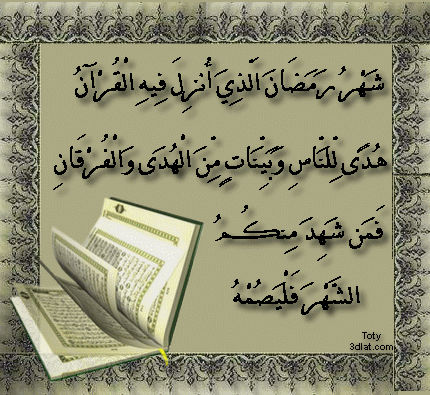 شَهْرُ رَمَضَانَ الَّذِيَ أُنزِلَ فِيهِ الْقُرْآنُ
هُدًى لِّلنَّاسِ وَبَيِّنَاتٍ مِّنَ الْهُدَى وَالْفُرْقَانِ
فَمَن شَهِدَ مِنكُمُ
الشَّهْرَ فَلْيَصُمْهُ
Toty
3dlat.com